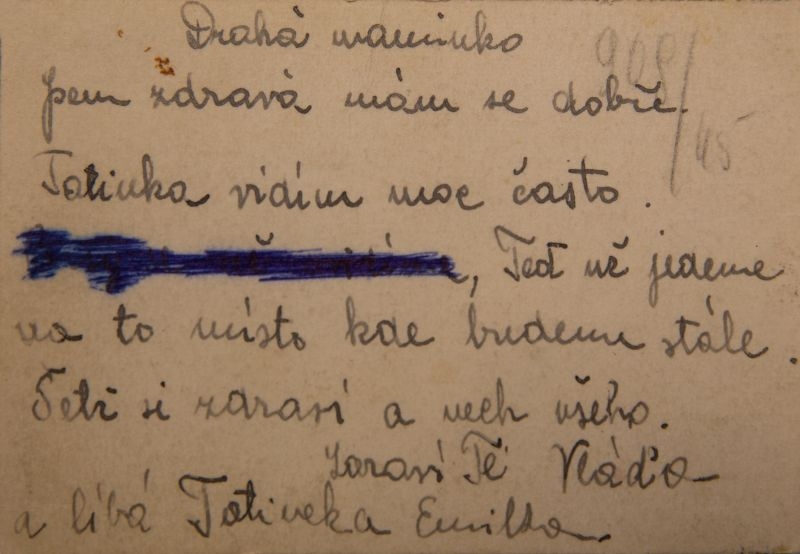 Drahá maminko
Jsem zdravá mám se dobře.
Tatinka vidím moc často.
, Teď už jedeme
na to místo kde budeme stále.
Šetř si zdraví a nech všeho.
Zdraví Tě Vláďa
a líbá Tatineka Emilka.